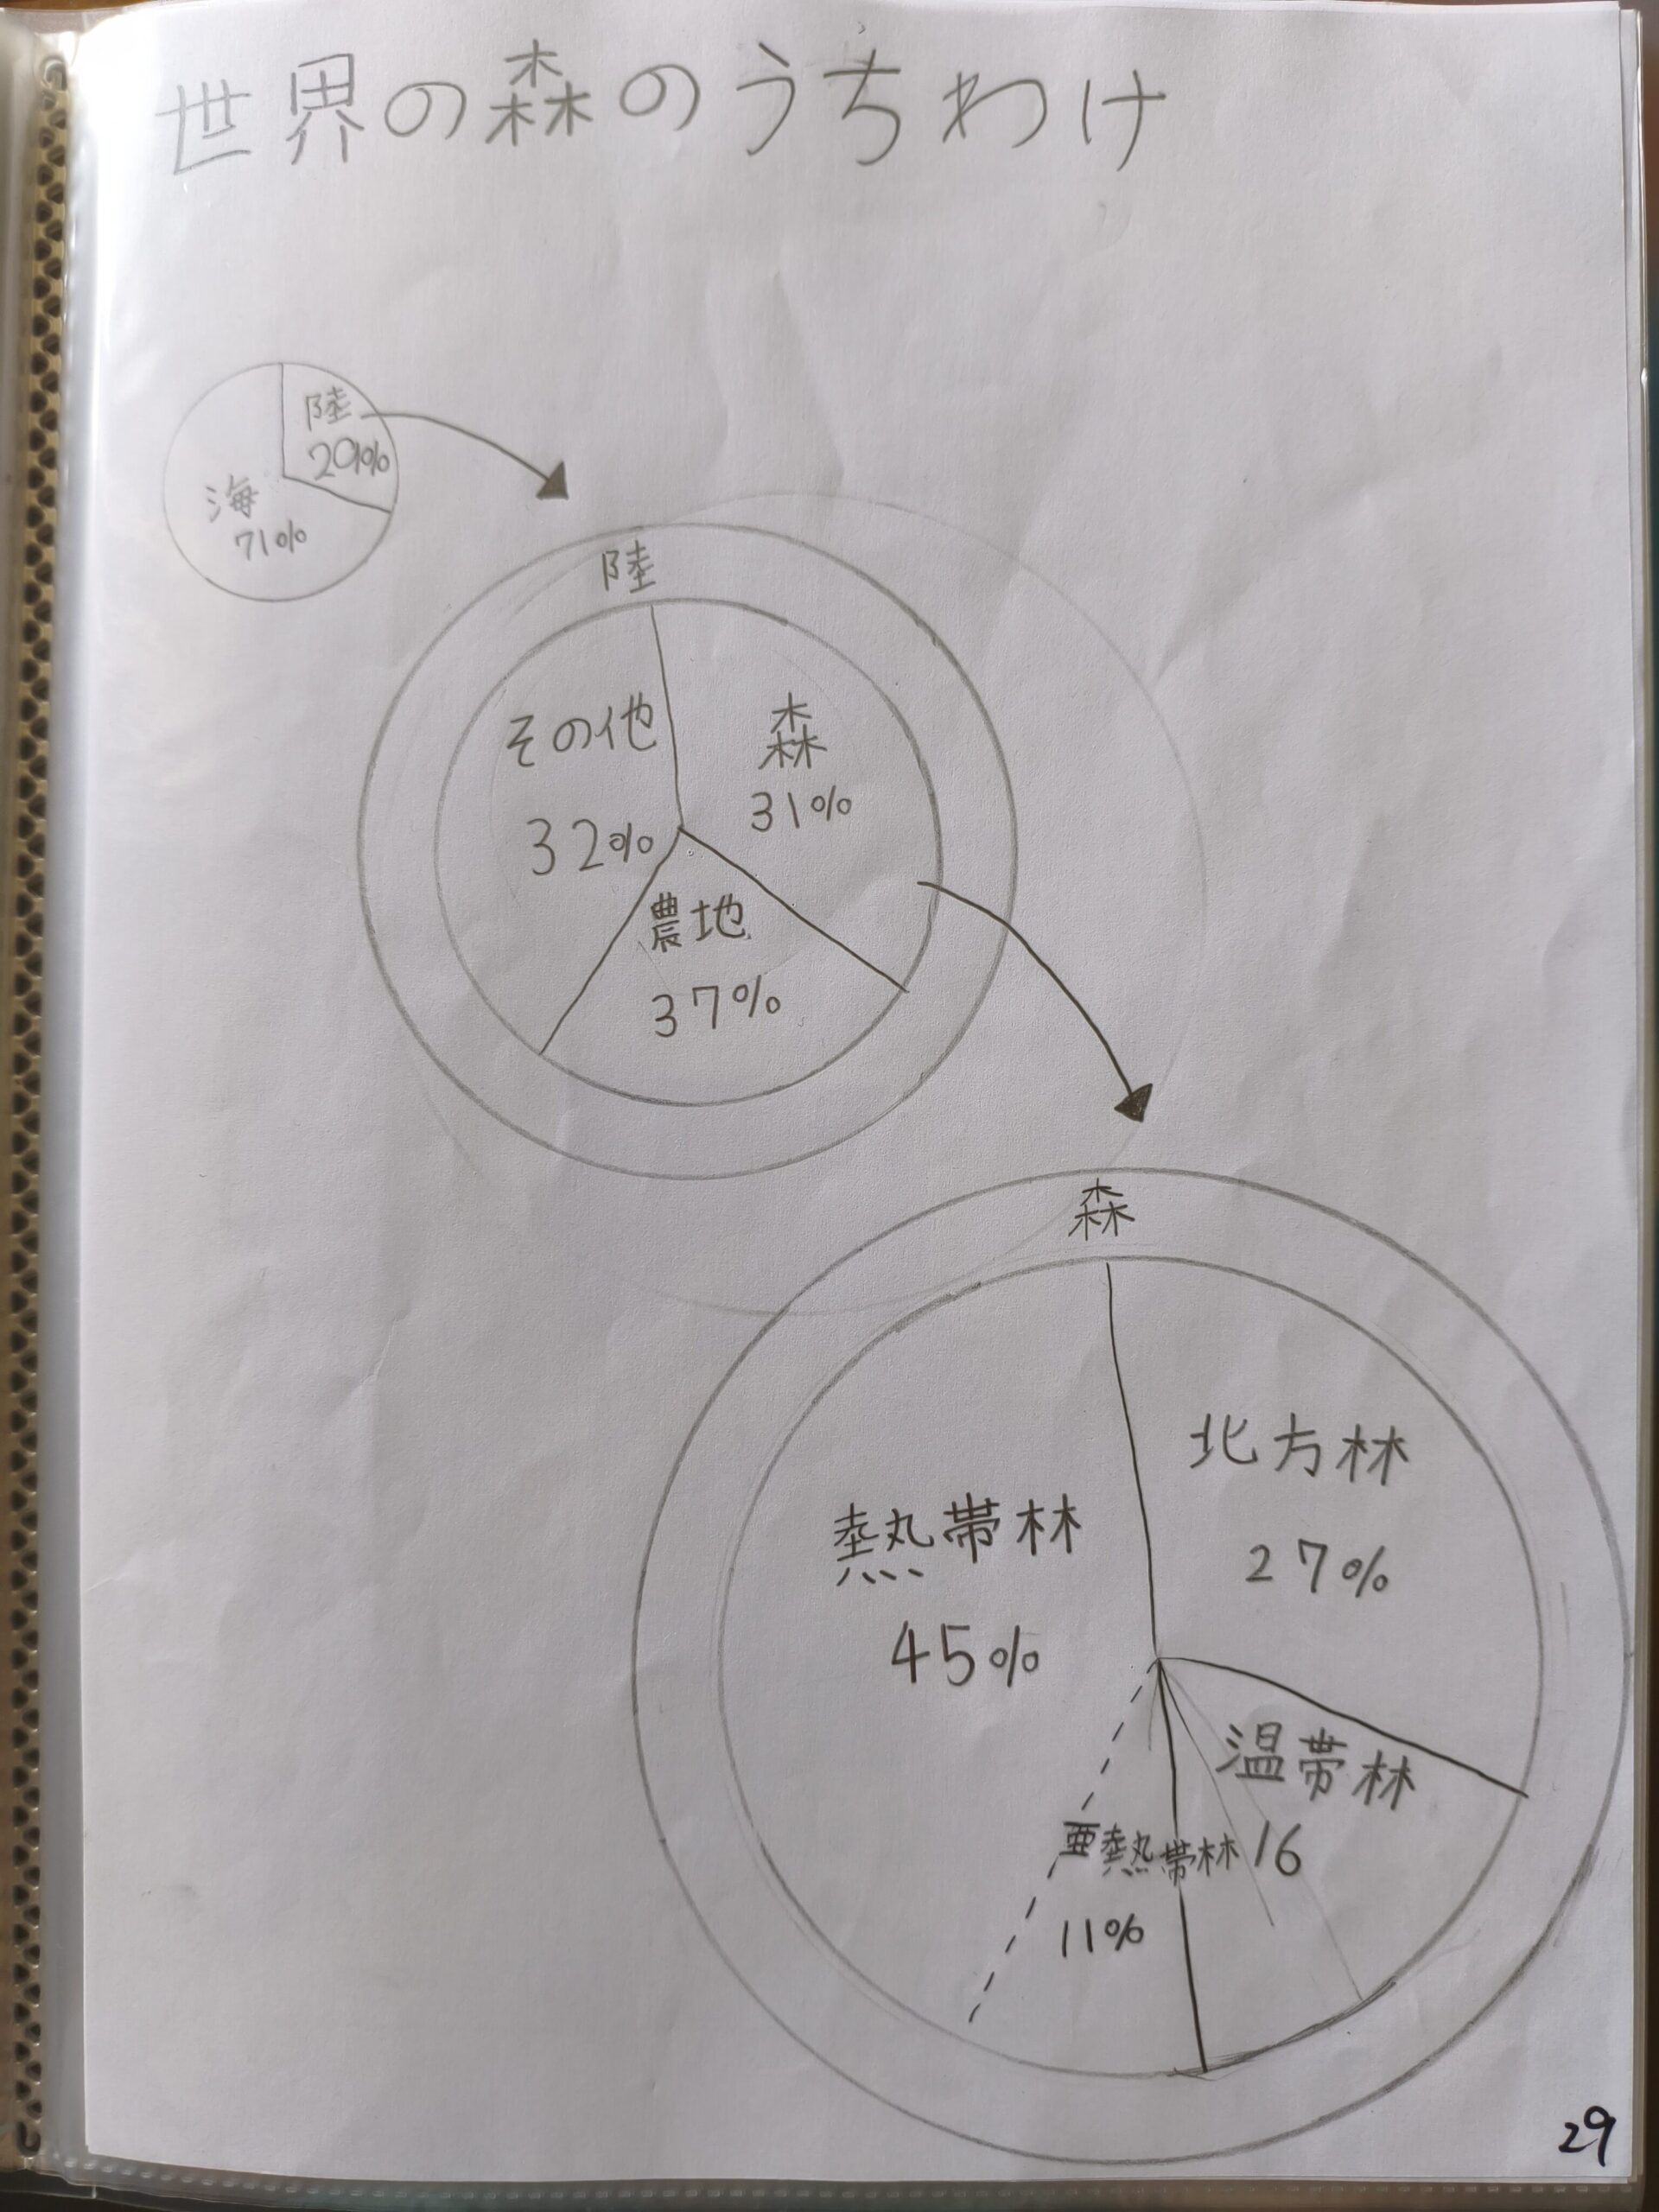 世界の森のうちわけ
陸
29%
海
71%
陸
その他
32%
森
31%
農地
37%
森
北方林
27%
熱帯林
45%
温帯林
16
亜熱帯林
11%
29